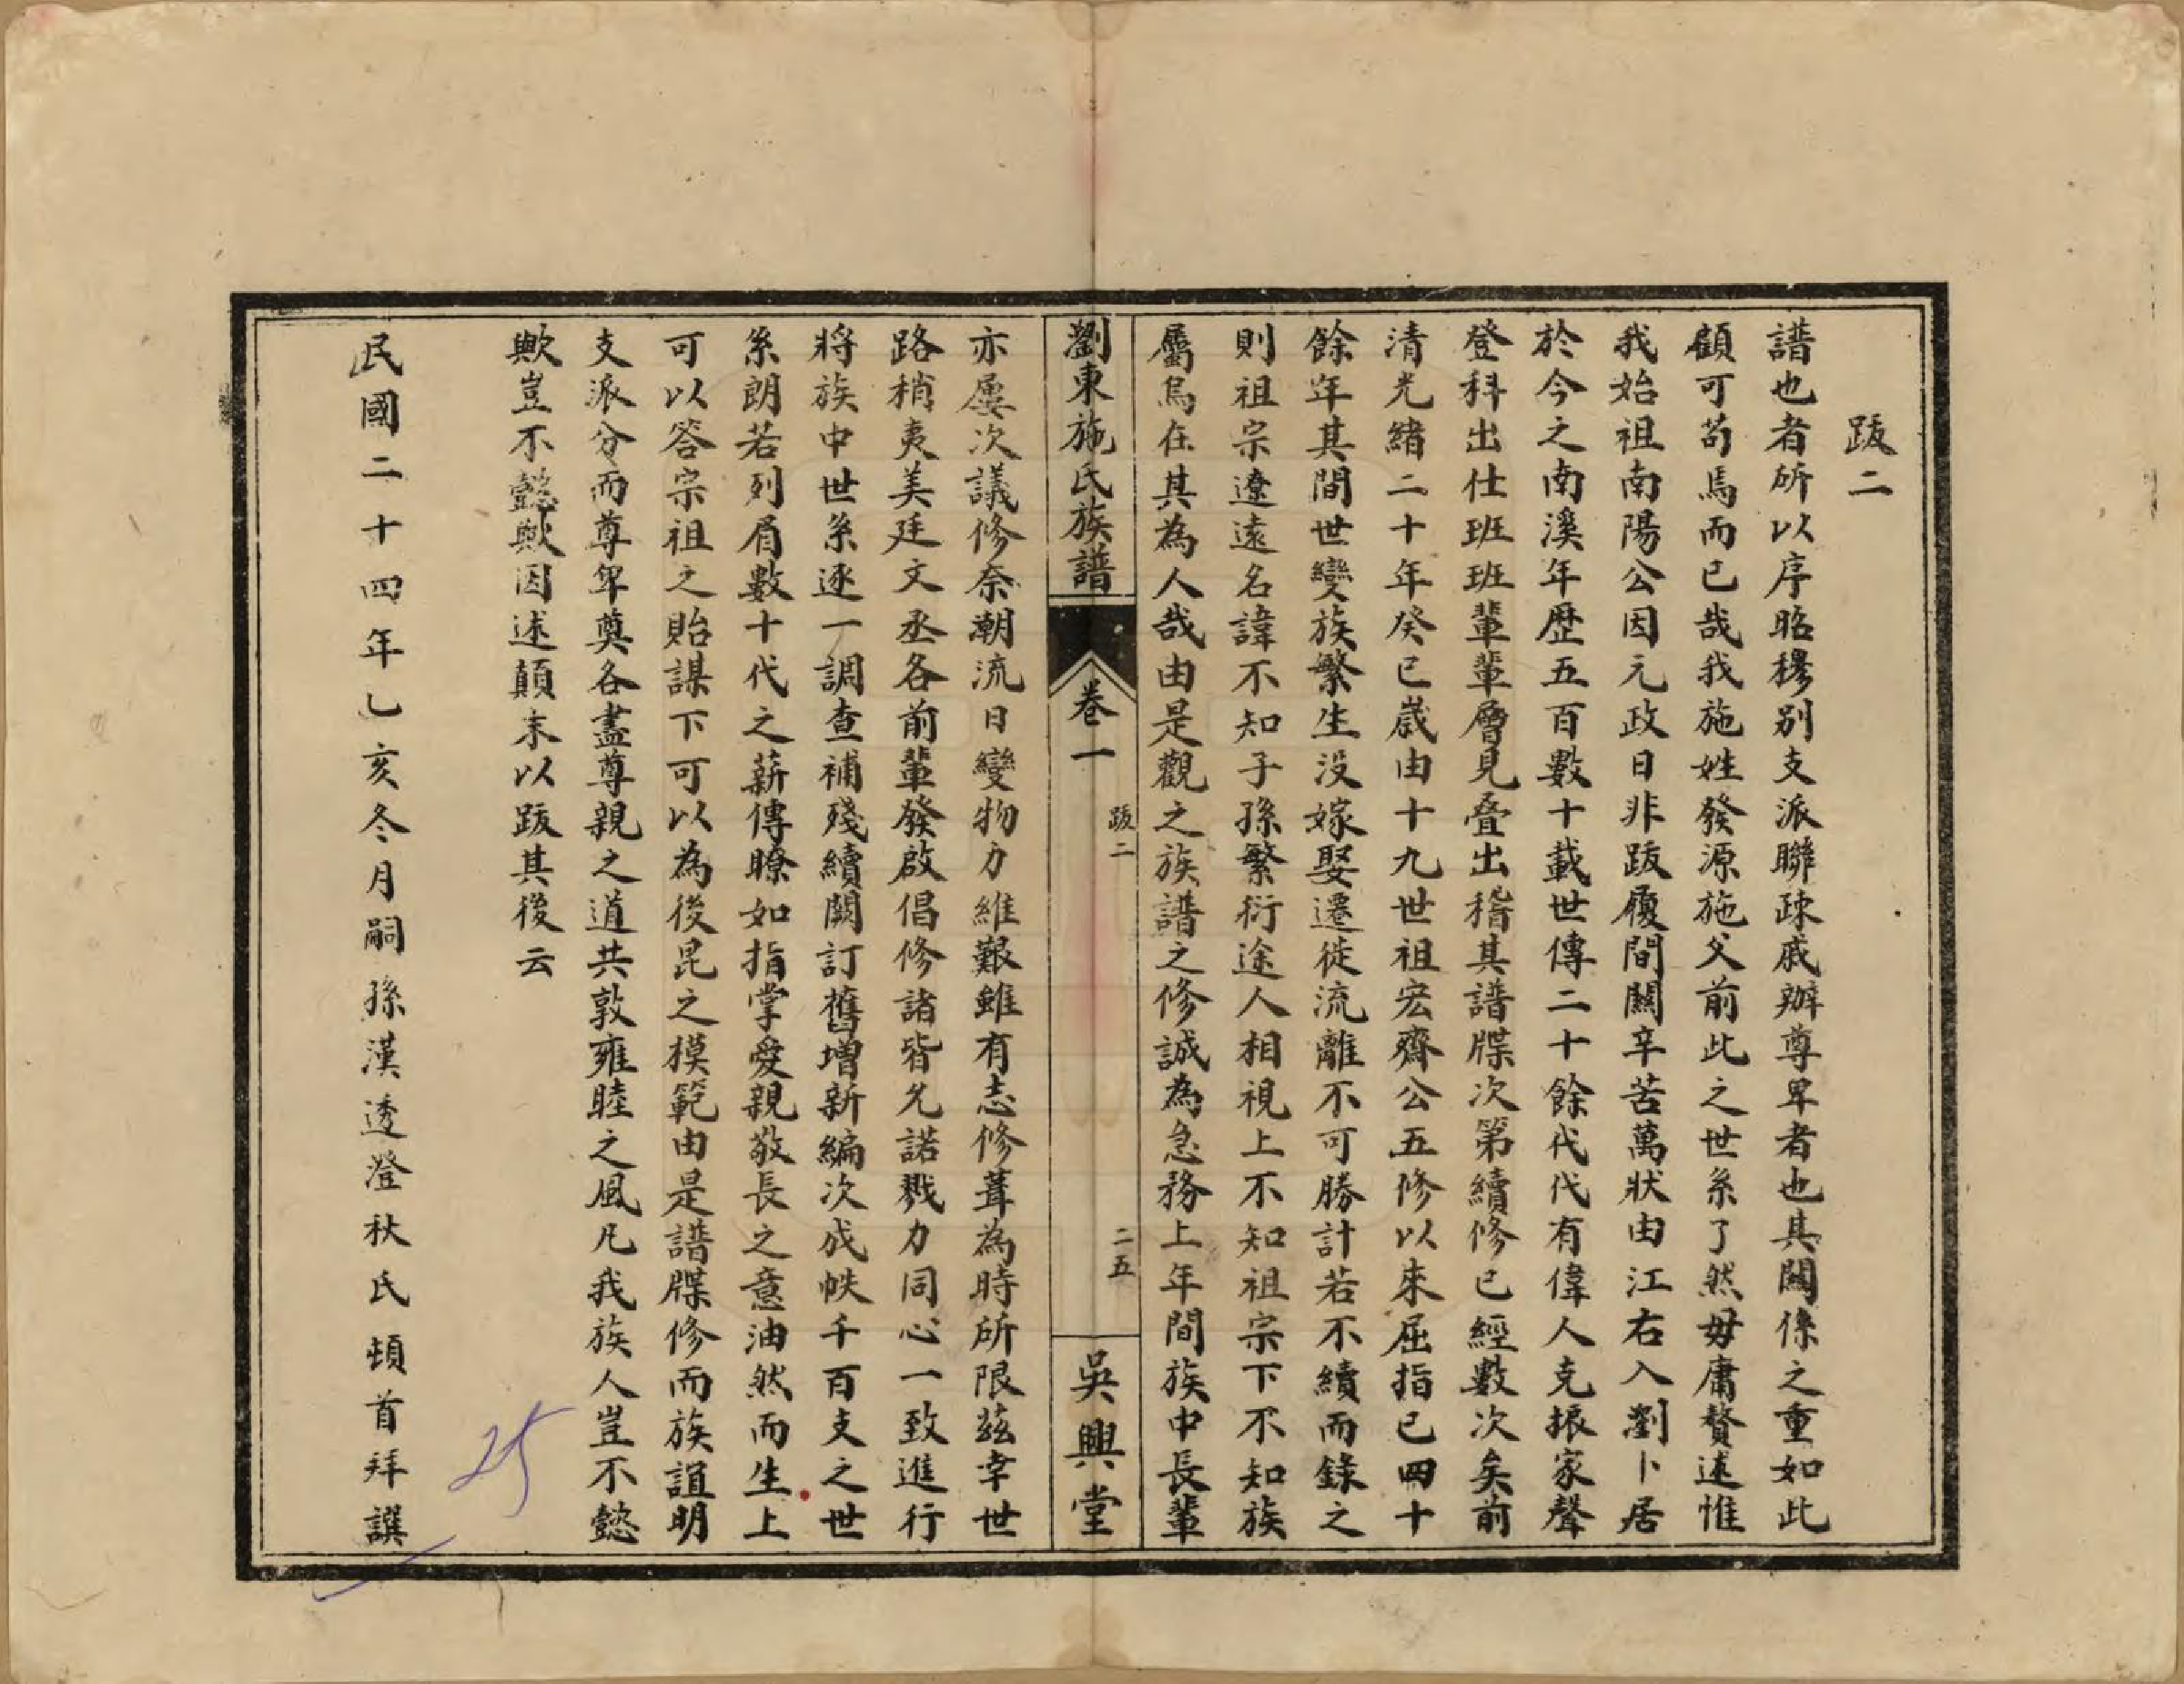 跋二
譜也者所以序昭穆別支派聯疎戚辦尊卑者也其關係之重如此
顧可苟焉而已哉我施姓發源施父前此之世系了然毋庸贅述惟
我始祖南陽公因元政日非跋履間關辛苦萬狀由江右入劉卜居
於今之南溪年歷五百數十載世傳二十餘代代有偉人克振家聲
登科出仕班班輩輩層見叠出稽其譜牒次第續修已經數次矣前
清光緒二十年癸巳歲由十九世祖宏齋公五修以來屈指已四十
餘年其間世變族繁生没嫁娶遷徙流離不可勝計若不續而錄之
則祖宗遼遠名諱不知子孫繁衍途人相視上不知祖宗下不知族
屬烏在其為人哉由是觀之族譜之修誠為急務上年間族中長輩
劉東施氏族譜
卷一
跋二
二五
吳興堂
亦屢次議修奈潮流日變物力維艱雖有志修葺為時所限茲幸世
路稍夷美廷文丞各前輩發啟倡修諸皆允諾戮力同心一致進行
將族中世系逐一調查補殘續闕訂舊增新編次成帙千百支之世
系朗若列眉數十代之薪傳瞭如指掌愛親敬長之意油然而生上
可以答宗祖之貽謀下可以為後昆之模範由是譜牒修而族誼明
支派分而尊卑奠各盡尊親之道共敦雍睦之風凡我族人豈不懿
歟豈不懿歟因述顛末以跋其後云
民國二十四年乙亥冬月嗣孫漢透澄秋氏頓首拜譔
25